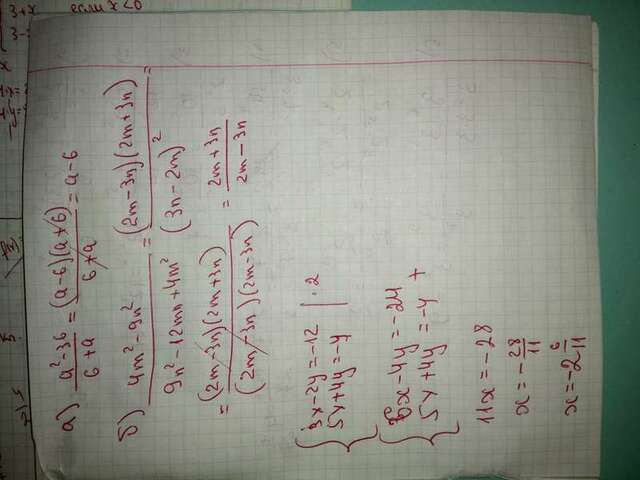 а) a²-36/6+a = (a-6)(a+6)/6+a = a-6
б) 4m²-9n²/9n²-12mn+4m² = (2m-3n)(2m+3n)/(3n-2m)² =
= (2m-3n)(2m+3n)/(2m-3n)(2m-3n) = 2m+3n/2m-3n
{3x-2y=-12 |·2
5x+4y=4
{6x-4y=-24
5x+4y=-4 +
11x=-28
x=-28/11
x=-2 6/11
3+x если x<0